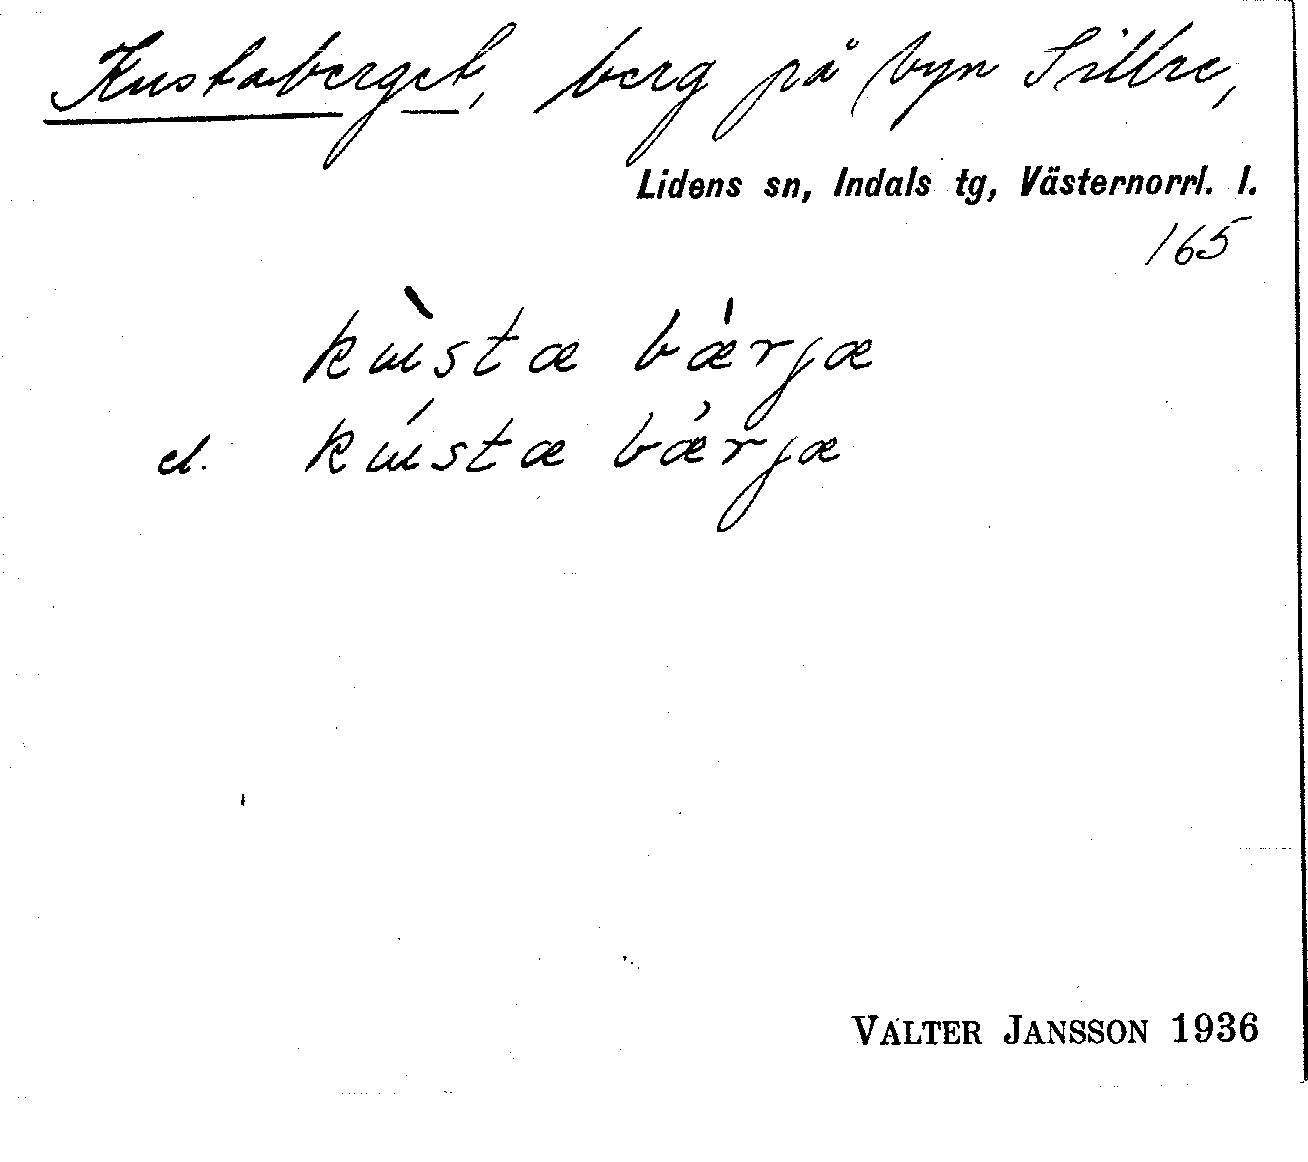 Kustaberget, berg på byn Sillre,
Lidens sn, Indals tg, Västernorrl. l.
165
kùstæ bǽrjæ
el. kústæ bærjæ
VALTER JANSSON 1936